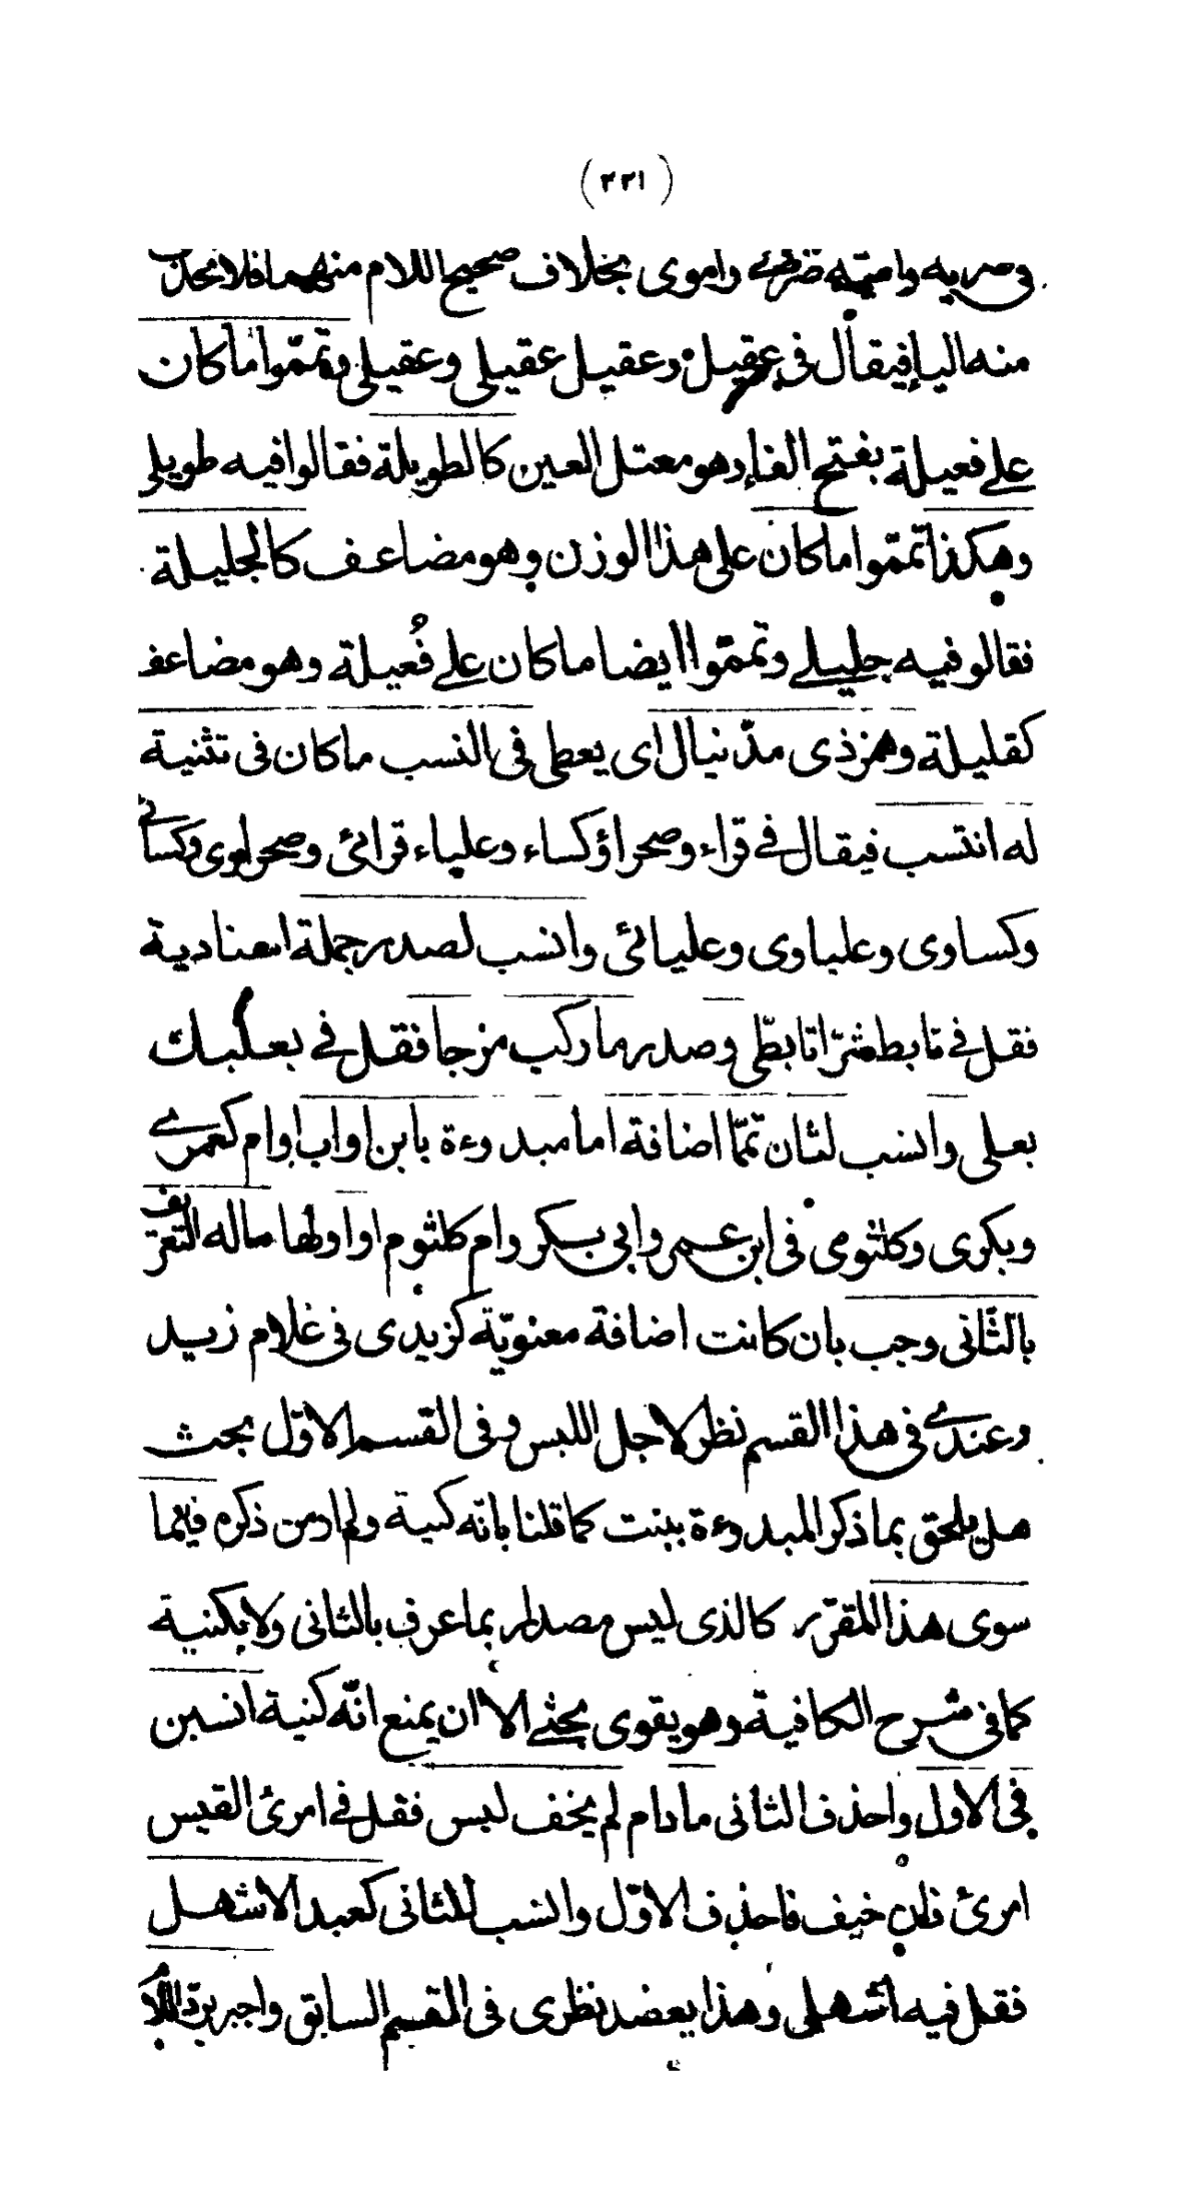 (٢٢١)
في ضريه واميّه ضروي واموى بخلاف صحيح اللام منهما فلا تحذف
منه اليا فيقال في عقيل وعقيل عقيلى وعقيلى وتمّموا ما كان
على فعيلة بفتح الفاء وهو معتل العين كالطويلة فقالوا فيه طويلى
وهكذا تمّموا ما كان على هذا الوزن وهو مضاعف كالجليلة
فقالو فيه جليلى وتممّوا ايضا ما كان على فُعيلة وهو مضاعف
كقليلة وهمز ذى مدّ نيال اى يعطى فى النسب ما كان فى تثنية
له انتسب فيقال في قراء وصحراؤ كساء وعلباء قرائى وصحراوى وكسائى
وكساوى وعلباوى وعلبائى وانسب لصدر جملة اسنادية
فقل في تابط شرّا تابطّى وصدر ما ركب مزجا فقل في بعلبك
بعلى وانسب لثان تمّما اضافة اما مبدوءة بابن او اب او ام كعمرى
وبكرى وكلثومى فى ابن عمر وابى بكر وام كلثوم او اولها ماله التعريف
بالثّانى وجب بان كانت اضافة معنويّة كزيدى فى غلام زيد
وعندى فى هذا القسم نظر لاجل اللبس وفى القسم الاوّل بحث
هل يلحق بما ذكر المبدوءة ببنت كما قلنا بانّه كنية ولم ار من ذكره فيما
سوى هذا المقرّر كالذى ليس مصدرا بما عرف بالثانى ولا بكنية
كما فى شرح الكافية وهو يقوى بحثى الا ان يمنع انّه كنية انسبن
فى الاول واحذف الثانى ما دام لم يخف لبس فقل في امرئ القيس
امرئ فان خيف فاحذف الاوّل وانسب للثانى كعبد الاشهل
فقل فيه اشهلى وهذا يعضد نظرى فى القسم السابق واجبر بردّ اللام